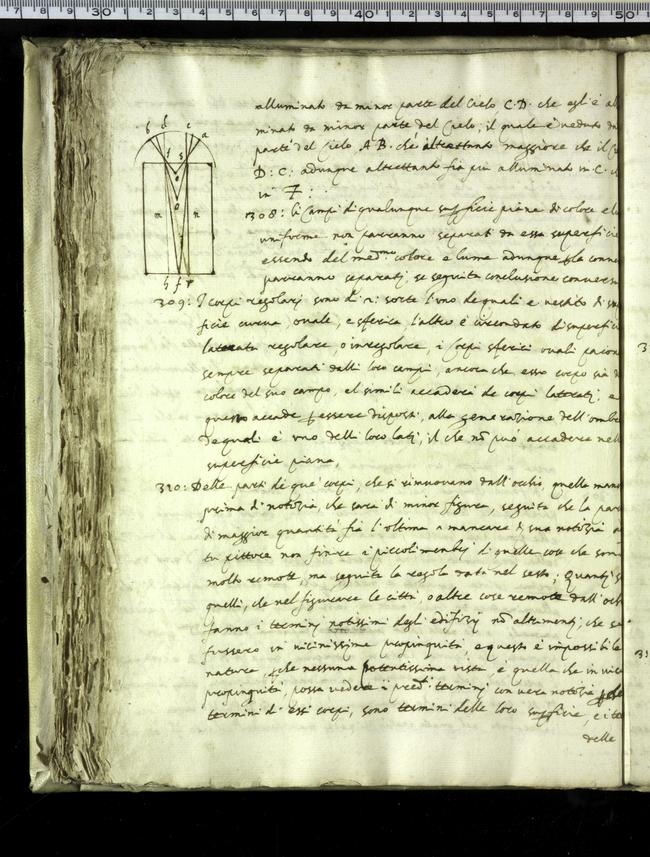 alluminato da minor parte del Cielo C.D. che egli è al
minato da minor parte del Cielo, il quale è veduto da
parte del Cielo AB. che altrettanto maggiore che il
D: C: adunque altrettanto fia più alluminato in C. ch
in F:
308: li Campi di qualunque sufficie piana di colore e lu
uniforme non parranno separati da essa superficie
essendo del med.mo colore e lume adunque p la conu
parranno separati, se seguita conclusione conuersa
309: I corpi regolarj sono di 2: sorte l'uno de quali è uestito di su
ficie curua, ouale, e sferica, l'altro è circondato di superfici
laterata regolare o inregolare, i Corpi sferici ouali paion
sempre separati dalli loro campi, ancora che esso corpo sia d
colore del suo campo, el simili accaderà de corpi lateratj, e
questo accade p essere disposti, alla generazione dell'ombr
de quali è uno delli loro latj, il che nõ può accadere nell
superficie piana.
310: Delle parti de que' corpi, che si rimuouano dall'occhio, quella man
prima di notizia, che sarà di minor figura, seguita che la par
di maggior quantità fia l'ultima a mancare di sua notizia a
tu pittore non finire i piccoli membrj di quelle cose che son
molto remote, ma seguita la regola data nel sesto; Quantj s
quelli, che nel figurare le città, o altre cose remote dall'och
fanno i terminj notissimi degli edifizij nõ altrimentj, che se
fussero in uicinissima propinquità, e questo è impossibile
natura, pche nessuna potentissima uista, è quella che in uici
propinquità, possa uedere i pred.i terminj con uera notizia pche
termini d'essi corpi, sono termini delle loro sufficie, e i te
delle
b d c a
f s
e
o
m n
h f p